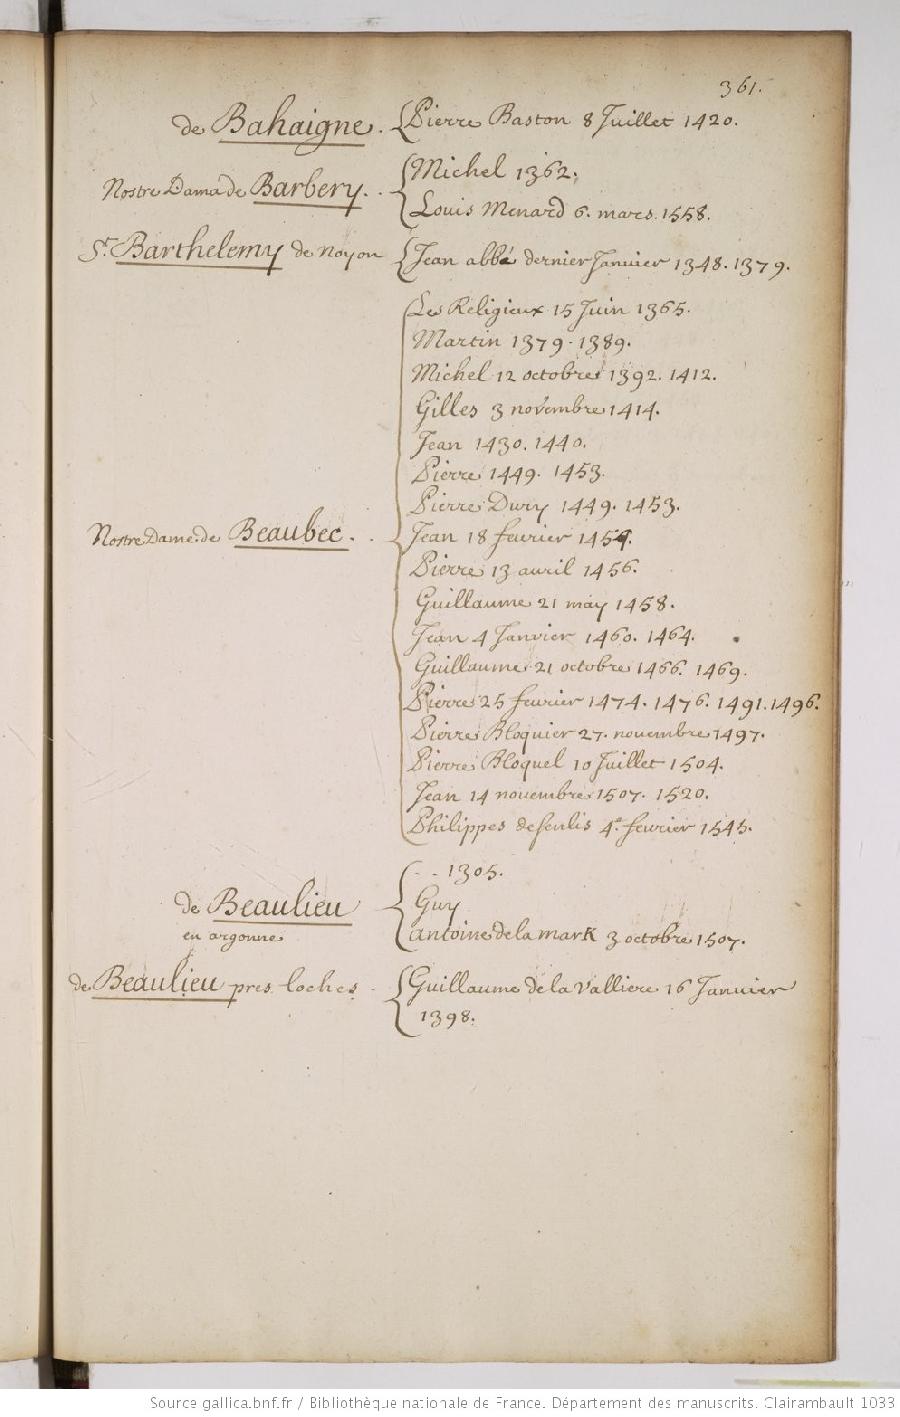 361.
de Bahaigne. Pierre Baston 8 Juillet 1420.
Michel 1362.
Nostre Dame de Barbery.
Louis Menard 6. mars. 1558.
St. Barthelemy de Noyon Jean abbé dernier Janvier 1348. 1379.
Les Religieux 15 Juin 1365.
Martin 1379. 1389.
Michel 12 octobre 1392. 1412.
Gilles 3 novembre 1414.
Jean 1430. 1440.
Pierre 1449. 1453.
Pierre Dury 1449. 1453.
Nostre Dame de Beaubec. Jean 18 feurier
Pierre 13 auril 1456.
Guillaume 21 may 1458.
Jean 4 Janvier 1460. 1464.
Guillaume 21 octobre 1466. 1469.
Pierre 25 feurier 1474. 1476. 1491. 1496.
Pierre Bloquier 27. novembre 1497.
Pierre Bloquel 10 Juillet 1504.
Jean 14 novembre 1507. 1520.
Philippes de senlis 4e. feurier 1545.
- - 1305.
de Beaulieu Guy
en argonne antoine de la mark 3 octobre 1507.
de Beaulieu pres Loches Guillaume de la Valliere 16 Janvier
1398.
Source gallica.bnf.fr / Bibliothèque nationale de France. Département des manuscrits. Clairambault 1033